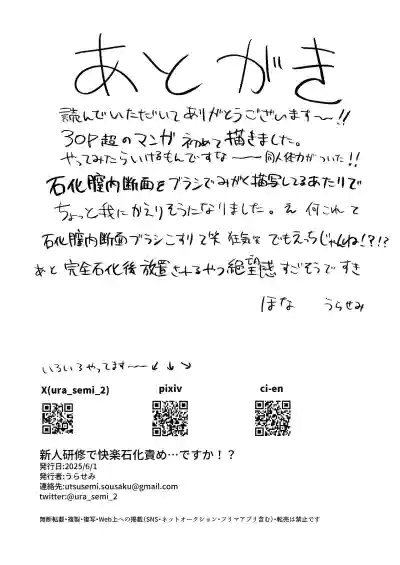 あとがき
読んでいただいてありがとうございます〜!!
30P超のマンガ 初めて描きました。
やってみたらいけるもんですな〜 同人体力がついた!!
石化膣内断面をブラシでみがく描写してるあたりで
ちょっと我にかえりそうになりました。え 何これ て
石化膣内断面ブラシこすりて笑 狂気な でもえっちじゃんね!?!?
あと 完全石化後 放置されるやつ 絶望感 すごそうで すき
ほな うらせみ
いろいろやってます〜↙↓↘
X(ura_semi_2) pixiv ci-en
新人研修で快楽石化責め…ですか!?
発行日:2025/6/1
発行者:うらせみ
連絡先:utsusemi.sousaku@gmail.com
twitter:@ura_semi_2
無断転載・複製・複写・Web上への掲載(SNS・ネットオークション・フリマアプリ含む)・転売は禁止です